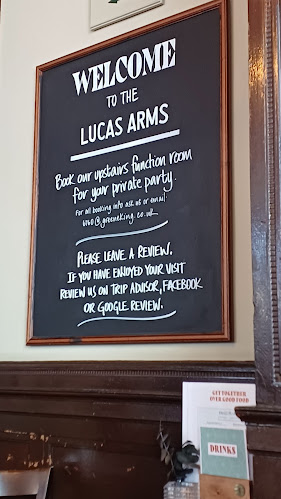 WELCOME
TO THE
LUCAS ARMS
Book our upstairs function room
for your private party.
For all booking info ask us or email
6060@greeneking.co.uk
PLEASE LEAVE A REVIEW.
IF YOU HAVE ENJOYED YOUR VISIT
REVIEW US ON TRIP ADVISOR, FACEBOOK
OR GOOGLE REVIEW.
GET TOGETHER
OVER GOOD FOOD
DRINKS